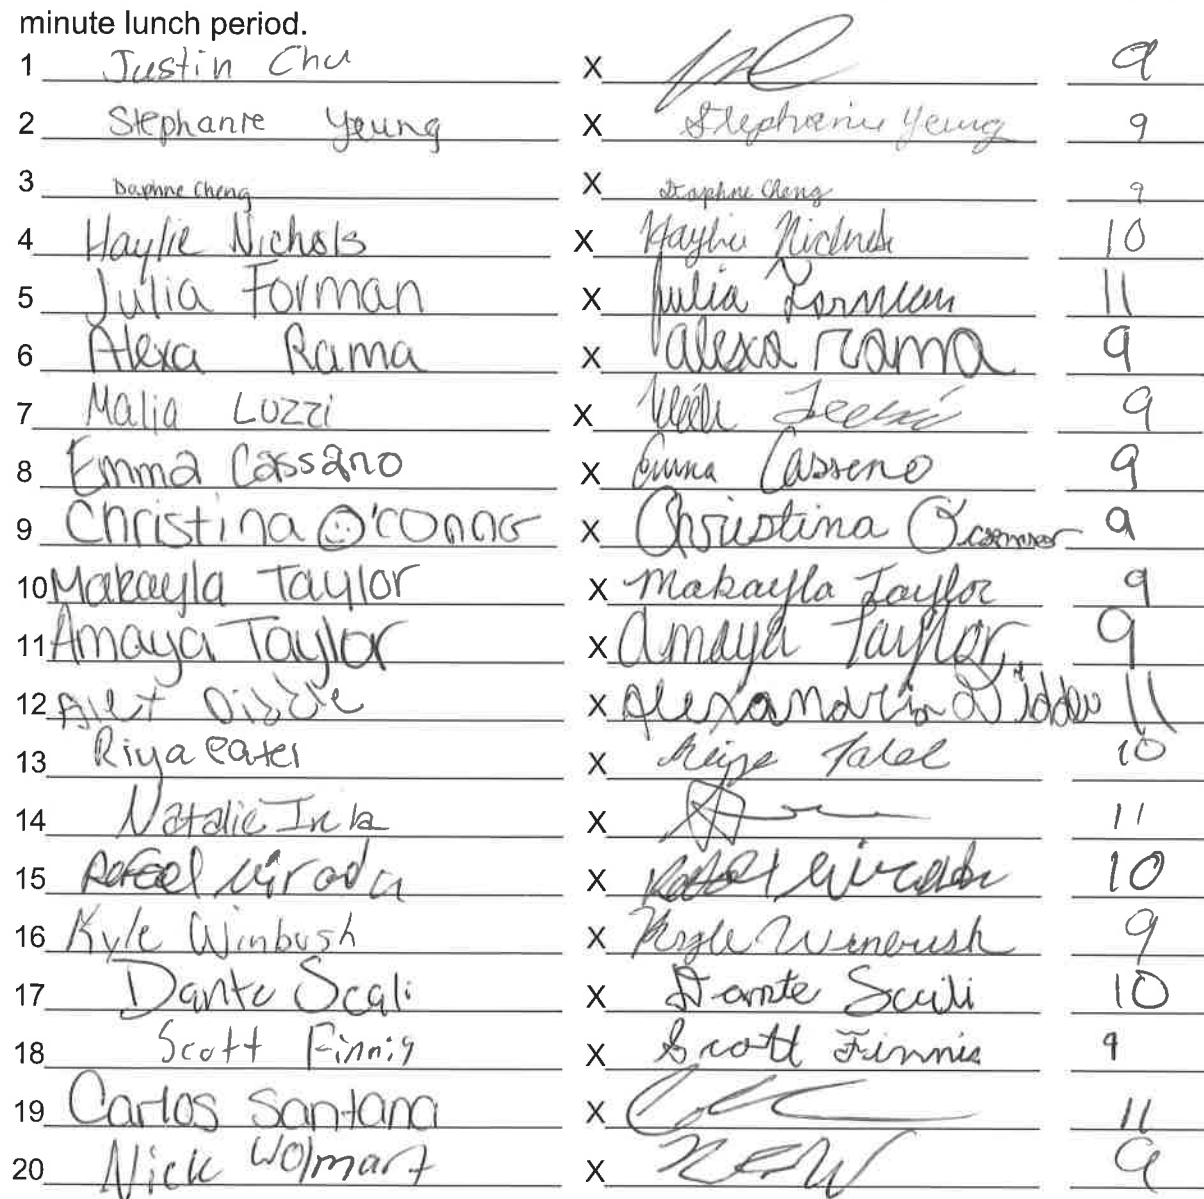 minute lunch period.
1 Justin Chu X 9
2 Stephanie Yeung X Stephanie Yeung 9
3 Daphne Cheng X Daphne Cheng 9
4 Haylie Nichols X Haylie Nichols 10
5 Julia Forman X Julia Forman 11
6 Alexa Rama X alexa rama 9
7 Malia Luzzi X 9
8 Emma Cassano X Emma Cassano 9
9 Christina O'CONNO X Christina O'connor 9
10 Makayla Taylor X Makayla Taylor 9
11 Amaya Taylor X Amaya Taylor 9
12 Alex X Alexandria 11
13 Riya Patel X Patel 10
14 Natalie X 11
15 Rafael X 10
16 Kyle Winbush X Kyle Winbush 9
17 Dante Scali X Dante Scali 10
18 Scott Finnis X Scott Finnis 9
19 Carlos Santana X 11
20 Nick Wolmart X 9